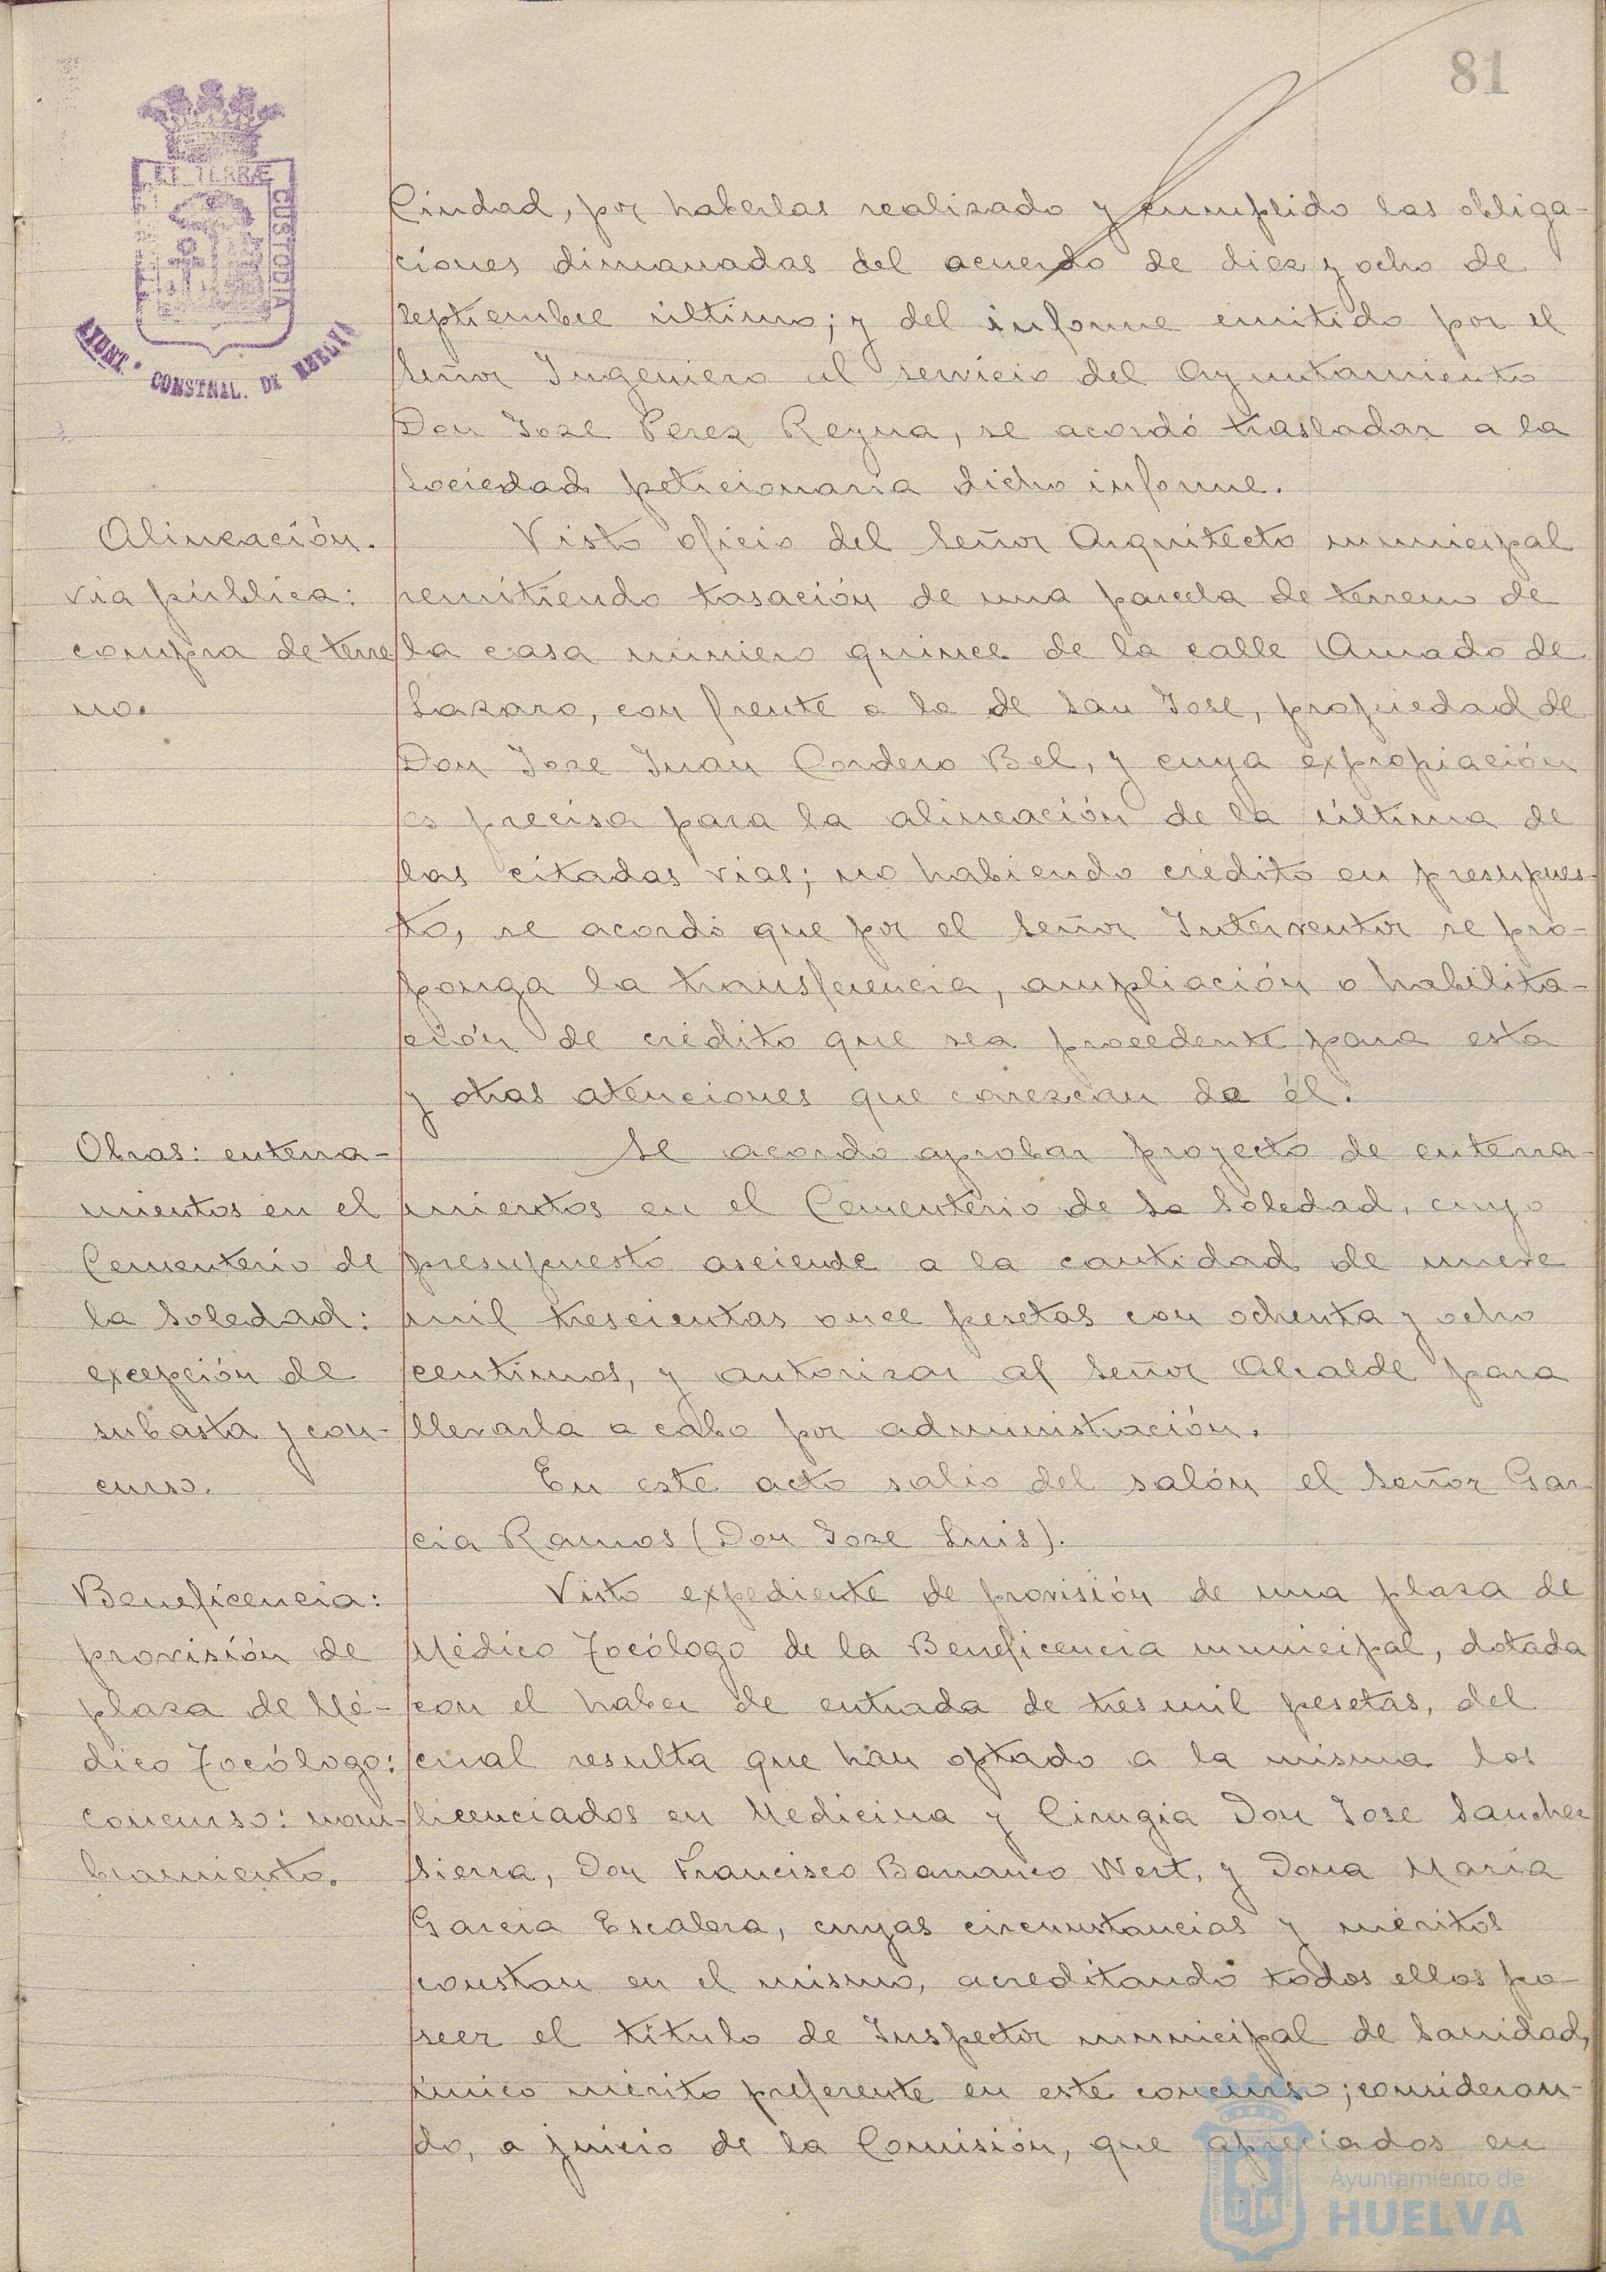 81
ET TERRÆ
CUSTODIA
AYUNT. CONSTNAL. DE HUELVA
Ciudad, por haberlas realizado y cumplido las obliga-
ciones dimanadas del acuerdo de diez y ocho de
septiembre último; y del informe emitido por el
Señor Ingeniero al servicio del Ayuntamiento
Don Jose Perez Reyna, se acordó trasladar a la
Sociedad peticionaria dicho informe.
Alineación.
via pública:
compra de terre
no.
Visto oficio del Señor Arquitecto municipal
remitiendo tasación de una parcela de terreno de
la casa número quince de la calle Amado de
Lazaro, con frente a la de San Jose, propiedad de
Don Jose Juan Cordero Bel, y cuya expropiación
es precisa para la alineación de la última de
las citadas vias; no habiendo crédito en presupues-
to, se acordó que por el Señor Interventor se pro-
ponga la transferencia, ampliación o habilita-
ción de crédito que sea procedente para esta
y otras atenciones que carezcan de él.
Obras: enterra-
mientos en el
Cementerio de
la Soledad:
excepción de
subasta y con-
curso.
Se acordo aprobar proyecto de enterra-
mientos en el Cementerio de la Soledad, cuyo
presupuesto asciende a la cantidad de nueve
mil trescientas once pesetas con ochenta y ocho
centimos, y autorizar al Señor Alcalde para
llevarla a cabo por administración.
En este acto salio del salón el Señor Gar-
cia Ramos (Don Jose Luis).
Beneficencia:
provisión de
plaza de Mé-
dico Tocólogo:
concurso: nom-
bramiento.
Visto expediente de provisión de una plaza de
Médico Tocólogo de la Beneficencia municipal, dotada
con el haber de entrada de tres mil pesetas, del
cual resulta que han optado a la misma los
licenciados en Medicina y Cirugia Don Jose Sanchez
Sierra, Don Francisco Barranco Wert, y Dona María
Garcia Escalera, cuyas circunstancias y méritos
constan en el mismo, acreditando todos ellos po-
seer el título de Inspector municipal de Sanidad,
único mérito preferente en este concurso; consideran-
do, a juicio de la Comisión, que apreciados en
Ayuntamiento de
HUELVA